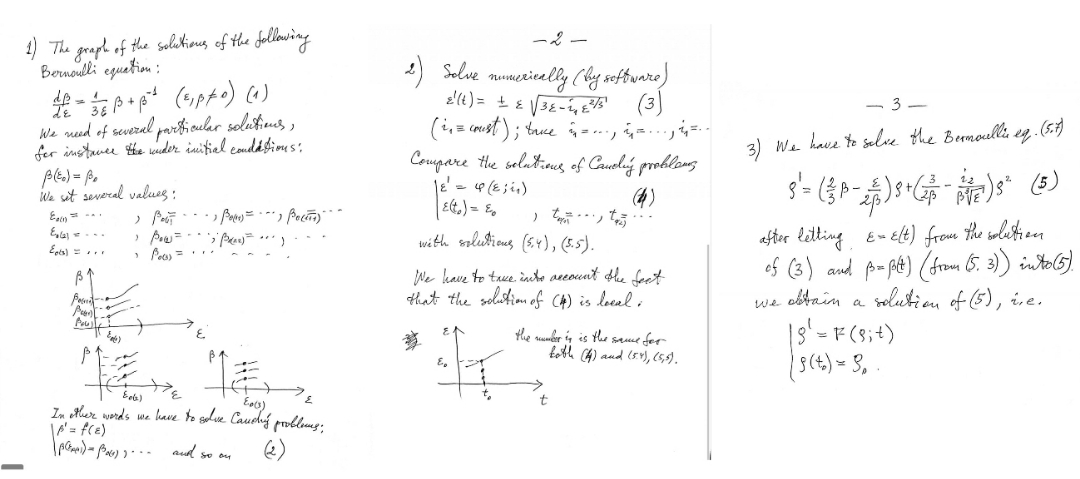 1) The graph of the solutions of the following
Bernoulli equation:
dβ/dε = 1/3ε β + β⁻¹ (ε, β ≠ 0) (1)
We need of several particular solutions,
for instance under initial conditions:
β(ε₀) = β₀
We set several values:
ε₀₍₁₎ = ...
ε₀₍₂₎ = ...
ε₀₍₃₎ = ...
β
ε
β
ε
β
ε
In other words we have to solve Cauchy problems:
β' = f(ε)
and so on (2)
- 2 -
2) Solve numerically (by software)
ε'(t) = ± ε √(3ε - i₁ ε^(2/5)) (3)
(i₁ = const); take i₁ = ..., i₁ = ..., i₁ = ..
Compare the solutions of Cauchy problems
ε' = φ(ε; i₁)
ε(t₀) = ε₀ (4)
with solutions (5,4), (5.5).
We have to take into account the fact
that the solution of (4) is local.
the number i₁ is the same for
both (4) and (5.4), (5,5).
ε
ε₀
t₀
t
- 3 -
3) We have to solve the Bernoulli eq. (5.7)
ρ' = (2/3 β - ε/2β) ρ + (3/2β - i₂/β³√ε) ρ² (5)
after letting ε = ε(t) from the solution
of (3) and β = β(t) (from (5. 3)) into (5)
we obtain a solution of (5), i.e.
ρ' = F(ρ; t)
ρ(t₀) = ρ₀.